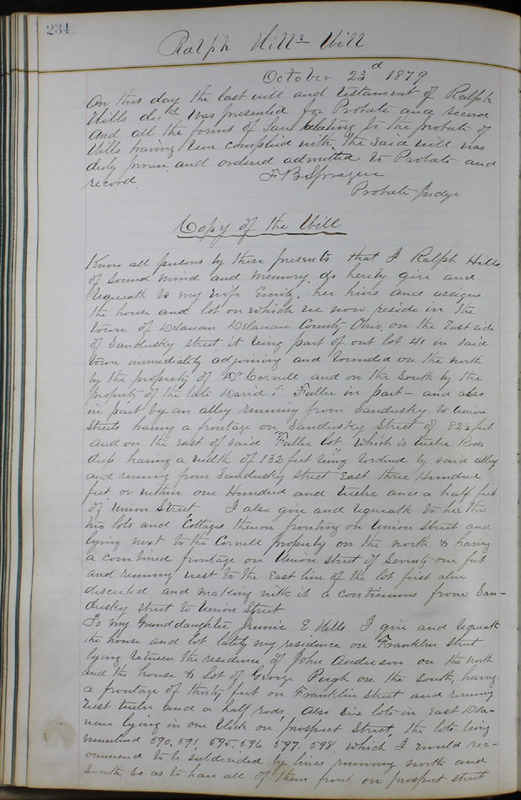 234
Ralph Hills Will
October 23d 1879
On this day the last will and testament of Ralph
Hills decd was presented for Probate and record
And all the forms of Law relating to the probate of
Wills having been complied with, the said will was
duly proven and ordered admitted to Probate and
record
F B Sprague
Probate Judge
Copy of the Will
Know all persons by these presents that I Ralph Hills
of sound mind and memory do hereby give and
bequeath to my wife Emily, her heirs and assigns
the house and lot on which we now reside in the
town of Delaware Delaware County Ohio, on the East side
of Sandusky street it being part of out lot 41 in said
town immediately adjoining and bounded on the north
by the property of Dr Cornell and on the South by the
property of the late David T. Fuller in part - and also
in part by an alley running from Sandusky to Union
Streets having a frontage on Sandusky Street of 82½ feet
and on the east of said "Fuller lot" which is twelve Rods
deep having a width of 132 feet being bordered by said alley
and running from Sandusky street East three Hundred
feet or within one Hundred and twelve and a half feet
of Union Street I also give and bequeath to her the
two lots and Cottage thereon fronting on Union Street and
lying next to the Cornell property on the north & having
a combined frontage on Union Street of Seventy one feet
and running west to the East line of the lot first above
described and making with it a continuous from San-
dusky street to Union Street
To my Granddaughter Jennie E Hills I give and bequeath
the house and lot lately my residence on Franklin Street
lying between the residence of John Anderson on the north
and the house & Lot of George Pugh on the south, having
a frontage of thirty feet on Franklin Street and running
west twelve and a half rods, Also six lots in East Dela-
ware lying in one block on prospect Street, the lots being
numbered 590, 591, 595, 596 597, 598 which I would rec-
ommend to be subdivided by lines running north and
South, so as to have all of them front on prospect street